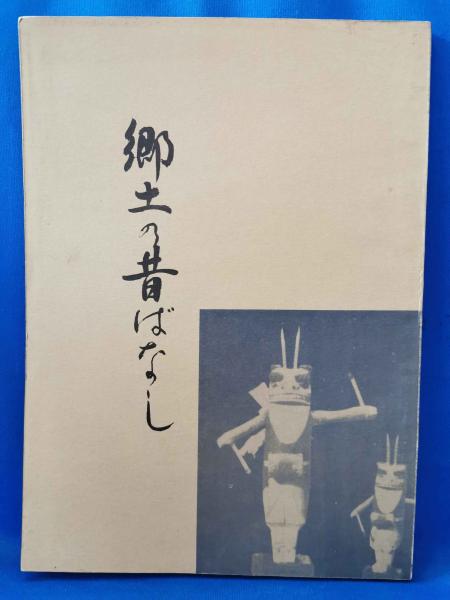 郷土の昔ばなし